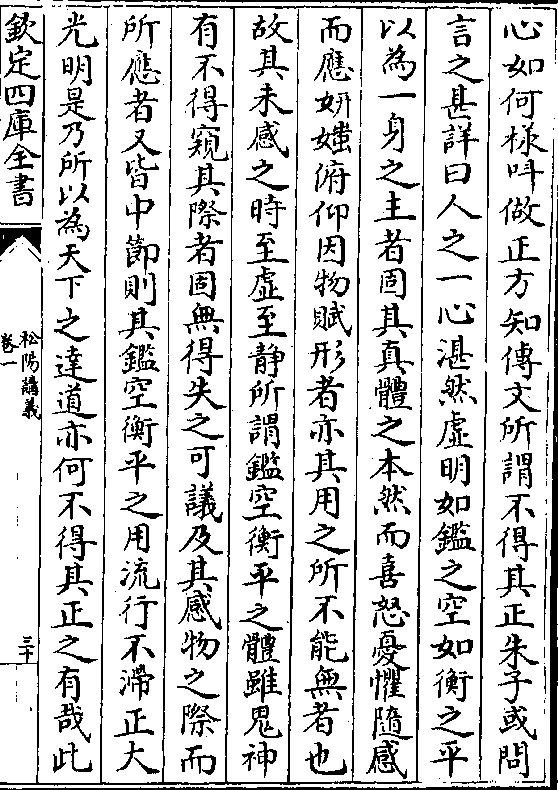 心如何樣呌做正方知傳文所謂不得其正朱子或問
言之甚詳曰人之一心湛然虛明如鑑之空如衡之平
以為一身之主者固其真體之本然而喜怒憂懼隨感
而應妍媸俯仰因物賦形者亦其用之所不能無者也
故其未感之時至虛至静所謂鑑空衡平之體雖鬼神
有不得窺其際者固無得失之可議及其感物之際而
所應者又皆中節則其鑑空衡平之用流行不滯正大
光明是乃所以為天下之達道亦何不得其正之有哉此
欽定四庫全書
松陽講義
卷一
三十